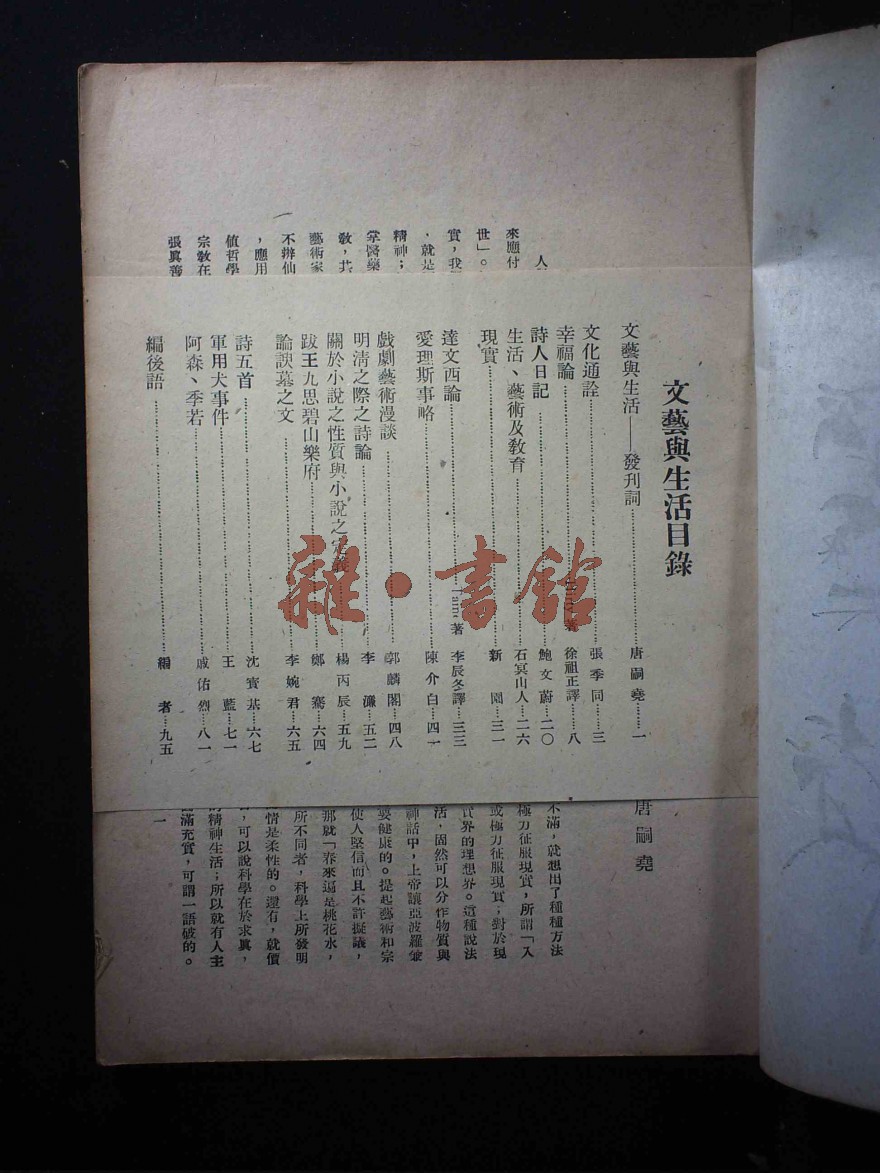 文藝與生活目錄
文藝與生活——發刊詞……唐嗣堯……一
文化通詮……張季同……三
幸福論……著 徐祖正譯……八
詩人日記……鮑文蔚……二〇
生活、藝術及教育……石冥山人……二六
現實……新園……三一
達文西論……著 李辰冬譯……三三
愛理斯事略……陳介白……四一
戲劇藝術漫談……郭麟閣……四八
明清之際之詩論……李濂……五二
關於小說之性質與小說之定義……楊丙辰……五九
跋王九思碧山樂府……鄭騫……六四
論諛墓之文……李婉君……六五
詩五首……沈寳基……六七
軍用犬事件……王藍……七一
阿森、季若……戚佑烈……八一
編後語……編者……九五
雜·書館
唐嗣堯
人
來應付
世」。
實，我
，就是
精神；
掌醫藥
教，其
藝術家
不辨仙
，應用
值哲學
宗教在
張真善
不滿，就想出了種種方法
極力征服現實，所謂「入
或極力征服現實；對於現
實界的理想界。這種說法
活，固然可以分作物質與
神話中，上帝讓亞波羅兼
要健康的。提起藝術和宗
使人堅信而且不許擬議，
那就「春來遍是桃花水，
所不同者，科學上所發明
情是柔性的。還有，就價
，可以說科學在於求真，
的精神生活；所以就有人主
滿充實，可謂一語破的。
一